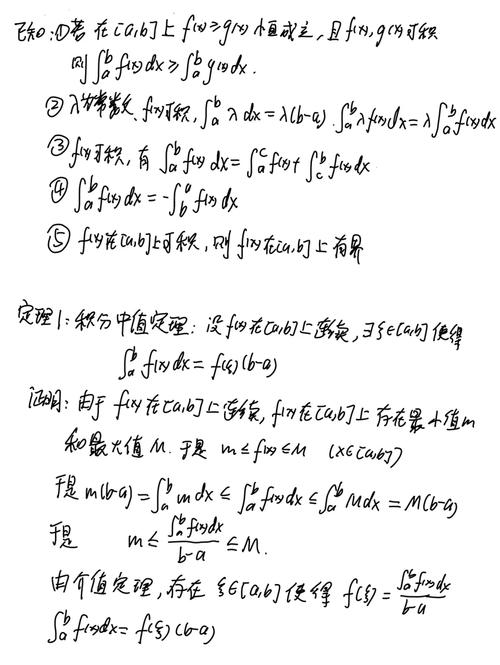 已知:①若在[a,b]上 f(x)≥g(x)恒成立,且f(x),g(x)可积
则∫_a^b f(x)dx≥∫_a^b g(x)dx.
②λ为常数、f(x)可积,∫_a^b λdx=λ(b-a).∫_a^b λf(x)dx=λ∫_a^b f(x)dx
③f(x)可积,有∫_a^b f(x)dx=∫_a^c f(x)+∫_c^b f(x)dx
④∫_a^b f(x)dx=-∫_b^a f(x)dx
⑤f(x)在[a,b]上可积,则f(x)在[a,b]上有界
定理1:积分中值定理:设f(x)在[a,b]上连续,∃ξ∈[a,b]使得
∫_a^b f(x)dx=f(ξ)(b-a)
证明:由于f(x)在[a,b]上连续,f(x)在[a,b]上存在最小值m
和最大值M.于是 m≤f(x)≤M (x∈[a,b])
于是m(b-a)=∫_a^b mdx≤∫_a^b f(x)dx≤∫_a^b Mdx=M(b-a)
于是 m≤∫_a^b f(x)dx/(b-a)≤M.
由介值定理,存在ξ∈[a,b]使得f(ξ)=∫_a^b f(x)dx/(b-a)
∫_a^b f(x)dx=f(ξ)(b-a)